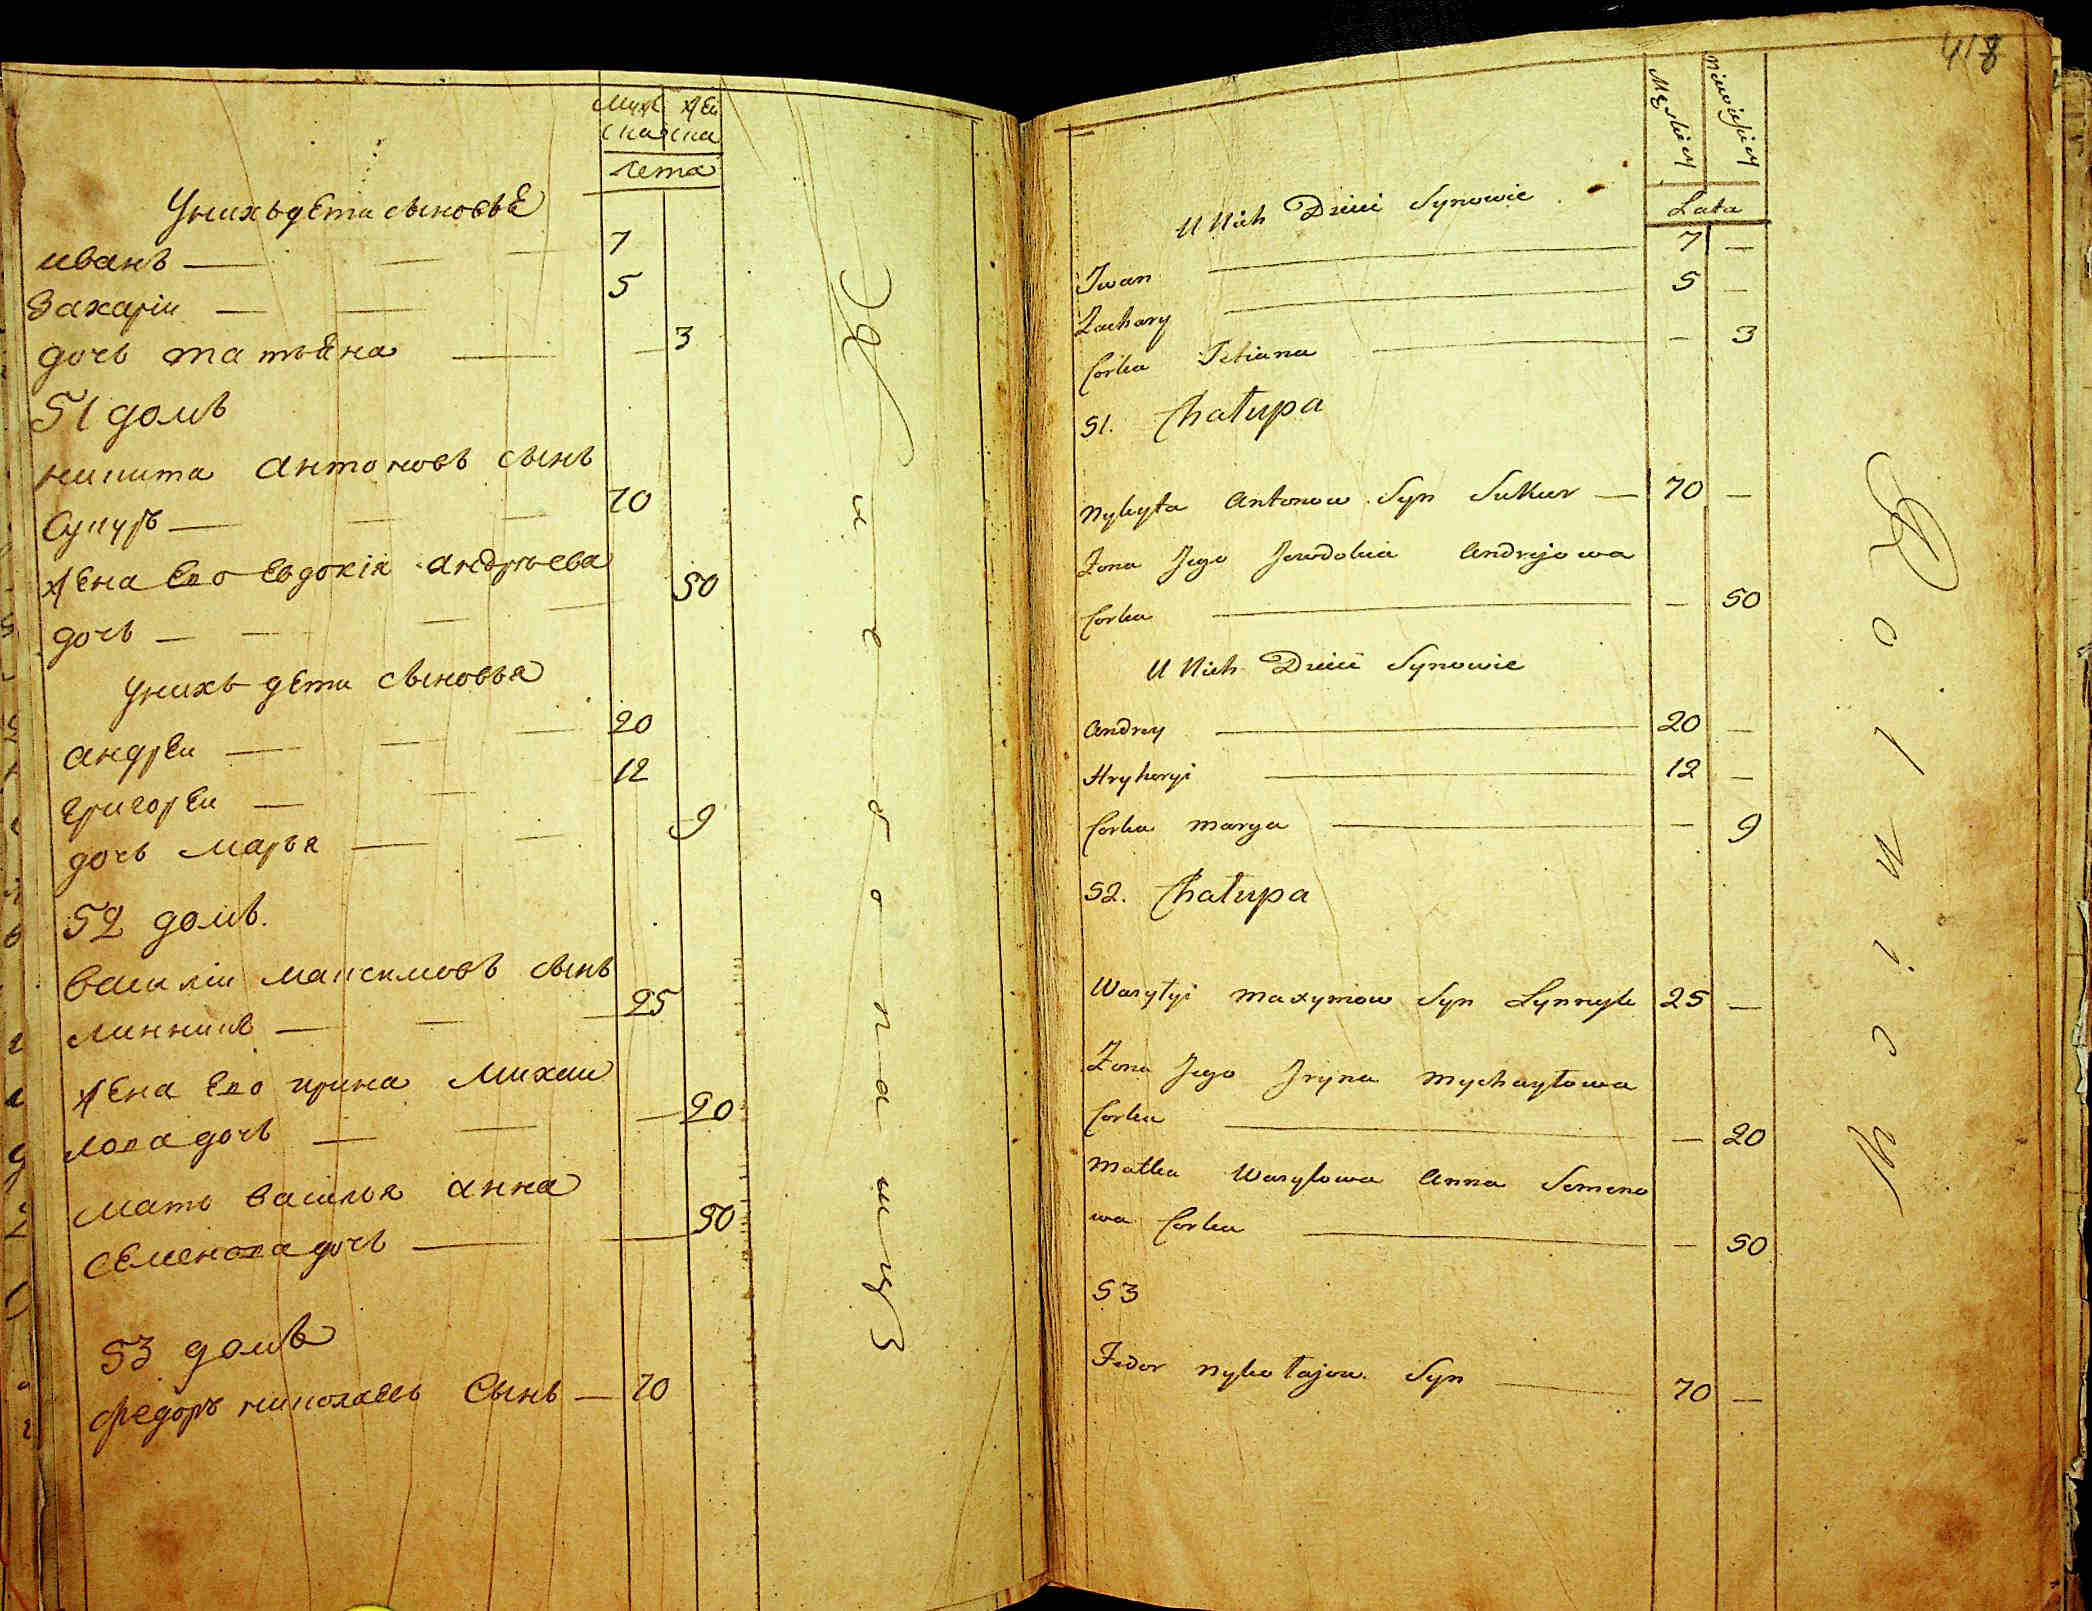 Муже Жен
ска ска
Лета
У нихъ дети сыновье
иванъ — 7
Захаріи — 5
дочь татьена — 3
51 домъ
никита антоновъ сынъ
Сукуръ — 70
жена Ево Евдокія андрѣева
дочь — 50
У нихъ дети сыновья
андреи — 20
григореи — 12
дочь марья — 9
52 домъ.
василіи максимовъ сынъ
линникъ — 25
жена Ево ирина михаи
лова дочь — 20
мать василья анна
семенова дочь — 50
53 домъ
федоръ николаевъ Сынъ — 70
418
Męskiey Niewieskiey
Lata
U Nich Dzieci Synowie
Iwan — 7 —
Zachary — 5 —
Corka Tetiana — 3
51. Chałupa
Nykyta Antonow Syn Sukur — 70 —
Zona Jego Jewdokia Andryjowa
Corka — 50
U Nich Dzieci Synowie
Andrey — 20 —
Hryhoryi — 12 —
Corka Marya — 9
52. Chałupa
Wasylyi Maxymow Syn Lynnyk 25 —
Zona Jego Iryna Mychayłowa
Corka — 20
Matka Wasylowa Anna Semeno
wa Corka — 50
53
Fedor Nykołajow Syn — 70 —
R o l n i c k